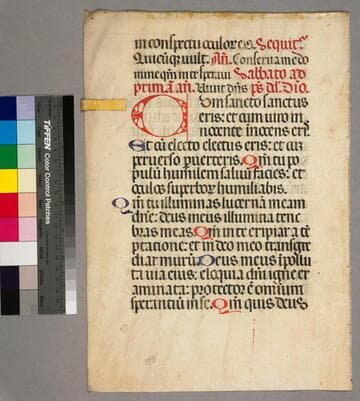 TIFFEN Color Control Patches
in conspectu oculor eis. Sequit.
Quicūq vult. Añ. Conserva me dō
mine qm̄ in te speravi Sabbato ad
primā añ. Vivit dn̄s ps̄ dd. Dīo.
Cum sancto sanctus
eris: et cum viro in
nocente inocens eris
Et cū electo electus eris: et cū
perverso pverteris. Qm̄ tu po
pulū humilem salvū facies: et
oculos superbor humiliabis.
Qm̄ tu illuminas lucernā meam
dn̄e: deus meus illumina tene
bras meas. Qm̄ in te eripiar a tē
ptatione: et in deo meo transgre
diar murū. Deus meus ipollu
ta via eius: eloquia dn̄i igne ex
aminata: protector ē omniūm
sperantiū in se. Qm̄ quis deus